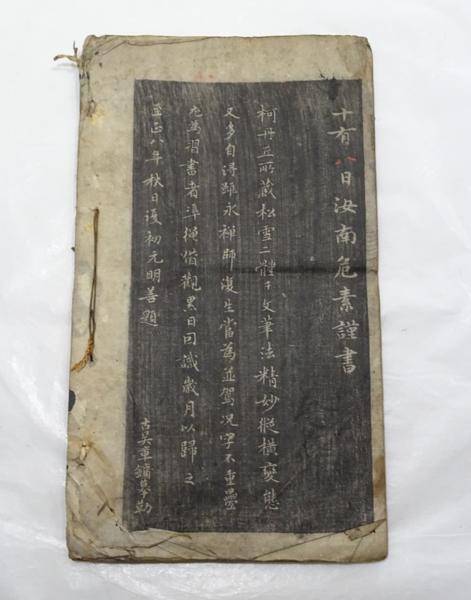 十有八日汝南危素謹書
柯丹丘所藏松雪二體千文筆法精妙縱橫變態
又多自得雖永禅師復生當為並駕况字不重疊
尤為習書者準繩借觀累日因識歲月以歸之
至正八年秋日後初元明善題
古吳章鏞摹勒